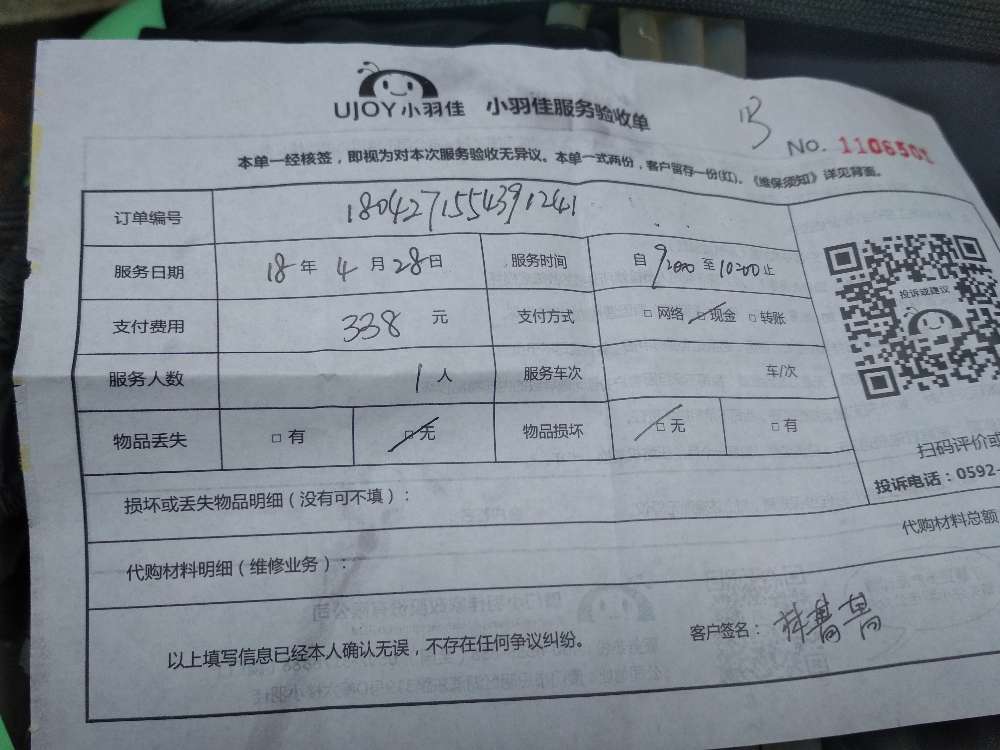 UJOY小羽佳 小羽佳服务验收单
No. 1106501
本单一经核签，即视为对本次服务验收无异议。本单一式两份，客户留存一份(红)。《维保须知》详见背面。
订单编号 1804271554391241
服务日期 18年4月28日 服务时间 自9:00至10:00止
支付费用 338元 支付方式 □网络 □现金 □转账
投诉或建议
服务人数 1人 服务车次 车/次
物品丢失 □有 □无 物品损坏 □无 □有
扫码评价或
投诉电话：0592-
损坏或丢失物品明细（没有可不填）：
代购材料明细（维修业务）： 代购材料总额
以上填写信息已经本人确认无误，不存在任何争议纠纷。 客户签名：